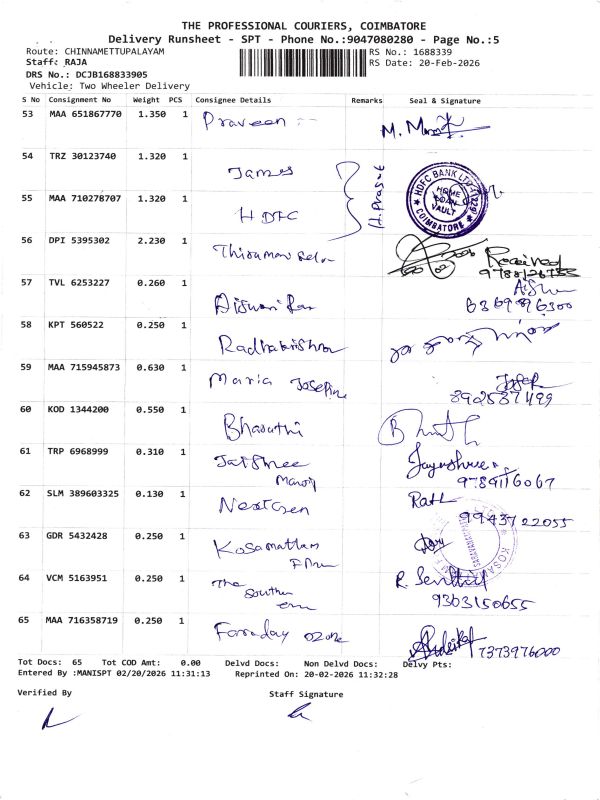 THE PROFESSIONAL COURIERS, COIMBATORE
Delivery Runsheet - SPT - Phone No.:9047080280 - Page No.:5
Route: CHINNAMETTUPALAYAM RS No.: 1688339
Staff: RAJA RS Date: 20-Feb-2026
DRS No.: DCJB168833905
Vehicle: Two Wheeler Delivery
S No Consignment No Weight PCS Consignee Details Remarks Seal & Signature
53 MAA 651867770 1.350 1 Praveen
54 TRZ 30123740 1.320 1 James
HDFC BANK LTD
HOME LOAN VAULT
COIMBATORE
55 MAA 710278707 1.320 1 HDFC
56 DPI 5395302 2.230 1 Received
57 TVL 6253227 0.260 1
58 KPT 560522 0.250 1 Radhakrishnan
59 MAA 715945873 0.630 1 Maria Josephine
60 KOD 1344200 0.550 1 Bharathi
61 TRP 6968999 0.310 1 Jaishree Jayashree
Manoj
62 SLM 389603325 0.130 1 NextGen
9943722055
63 GDR 5432428 0.250 1 Kosamattam
64 VCM 5163951 0.250 1 The
Southern
9303150655
65 MAA 716358719 0.250 1 Faraday Ozone
7373976000
Tot Docs: 65 Tot COD Amt: 0.00 Delvd Docs: Non Delvd Docs: Delvy Pts:
Entered By :MANISPT 02/20/2026 11:31:13 Reprinted On: 20-02-2026 11:32:28
Verified By Staff Signature